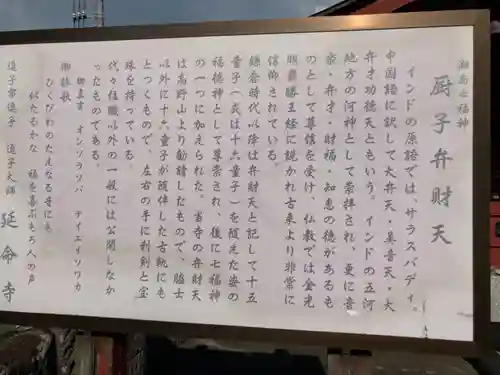 湘南七福神
厨子弁財天
インドの原語では、サラスバディ。
中国語に訳して大弁天・美音天・大
弁才功徳天ともいう。インドの五河
地方の河神として崇拝され、更に音
楽・弁才・財福・知恵の徳があるも
のとして尊信を受け、仏教では金光
明最勝王経に説かれ古来より非常に
信仰されている。
鎌倉時代以降は弁財天と記して十五
童子（或は十六童子）を随えた姿の
福徳神として尊崇され、後に七福神
の一つに加えられた。当寺の弁財天
は高野山より勧請したもので、脇士
以外に十六童子が随伴した古軌にも
とつくもので、左右の手に利剣と宝
珠を持っている。
代々住職以外の一般には公開しなか
ったものである。
御真言 オンソラソバ テイエイソワカ
御詠歌
ひくびわのたえなる音にも
似たるかな 福を喜ぶもろ人の声
逗子市逗子 逗子大師 延命寺